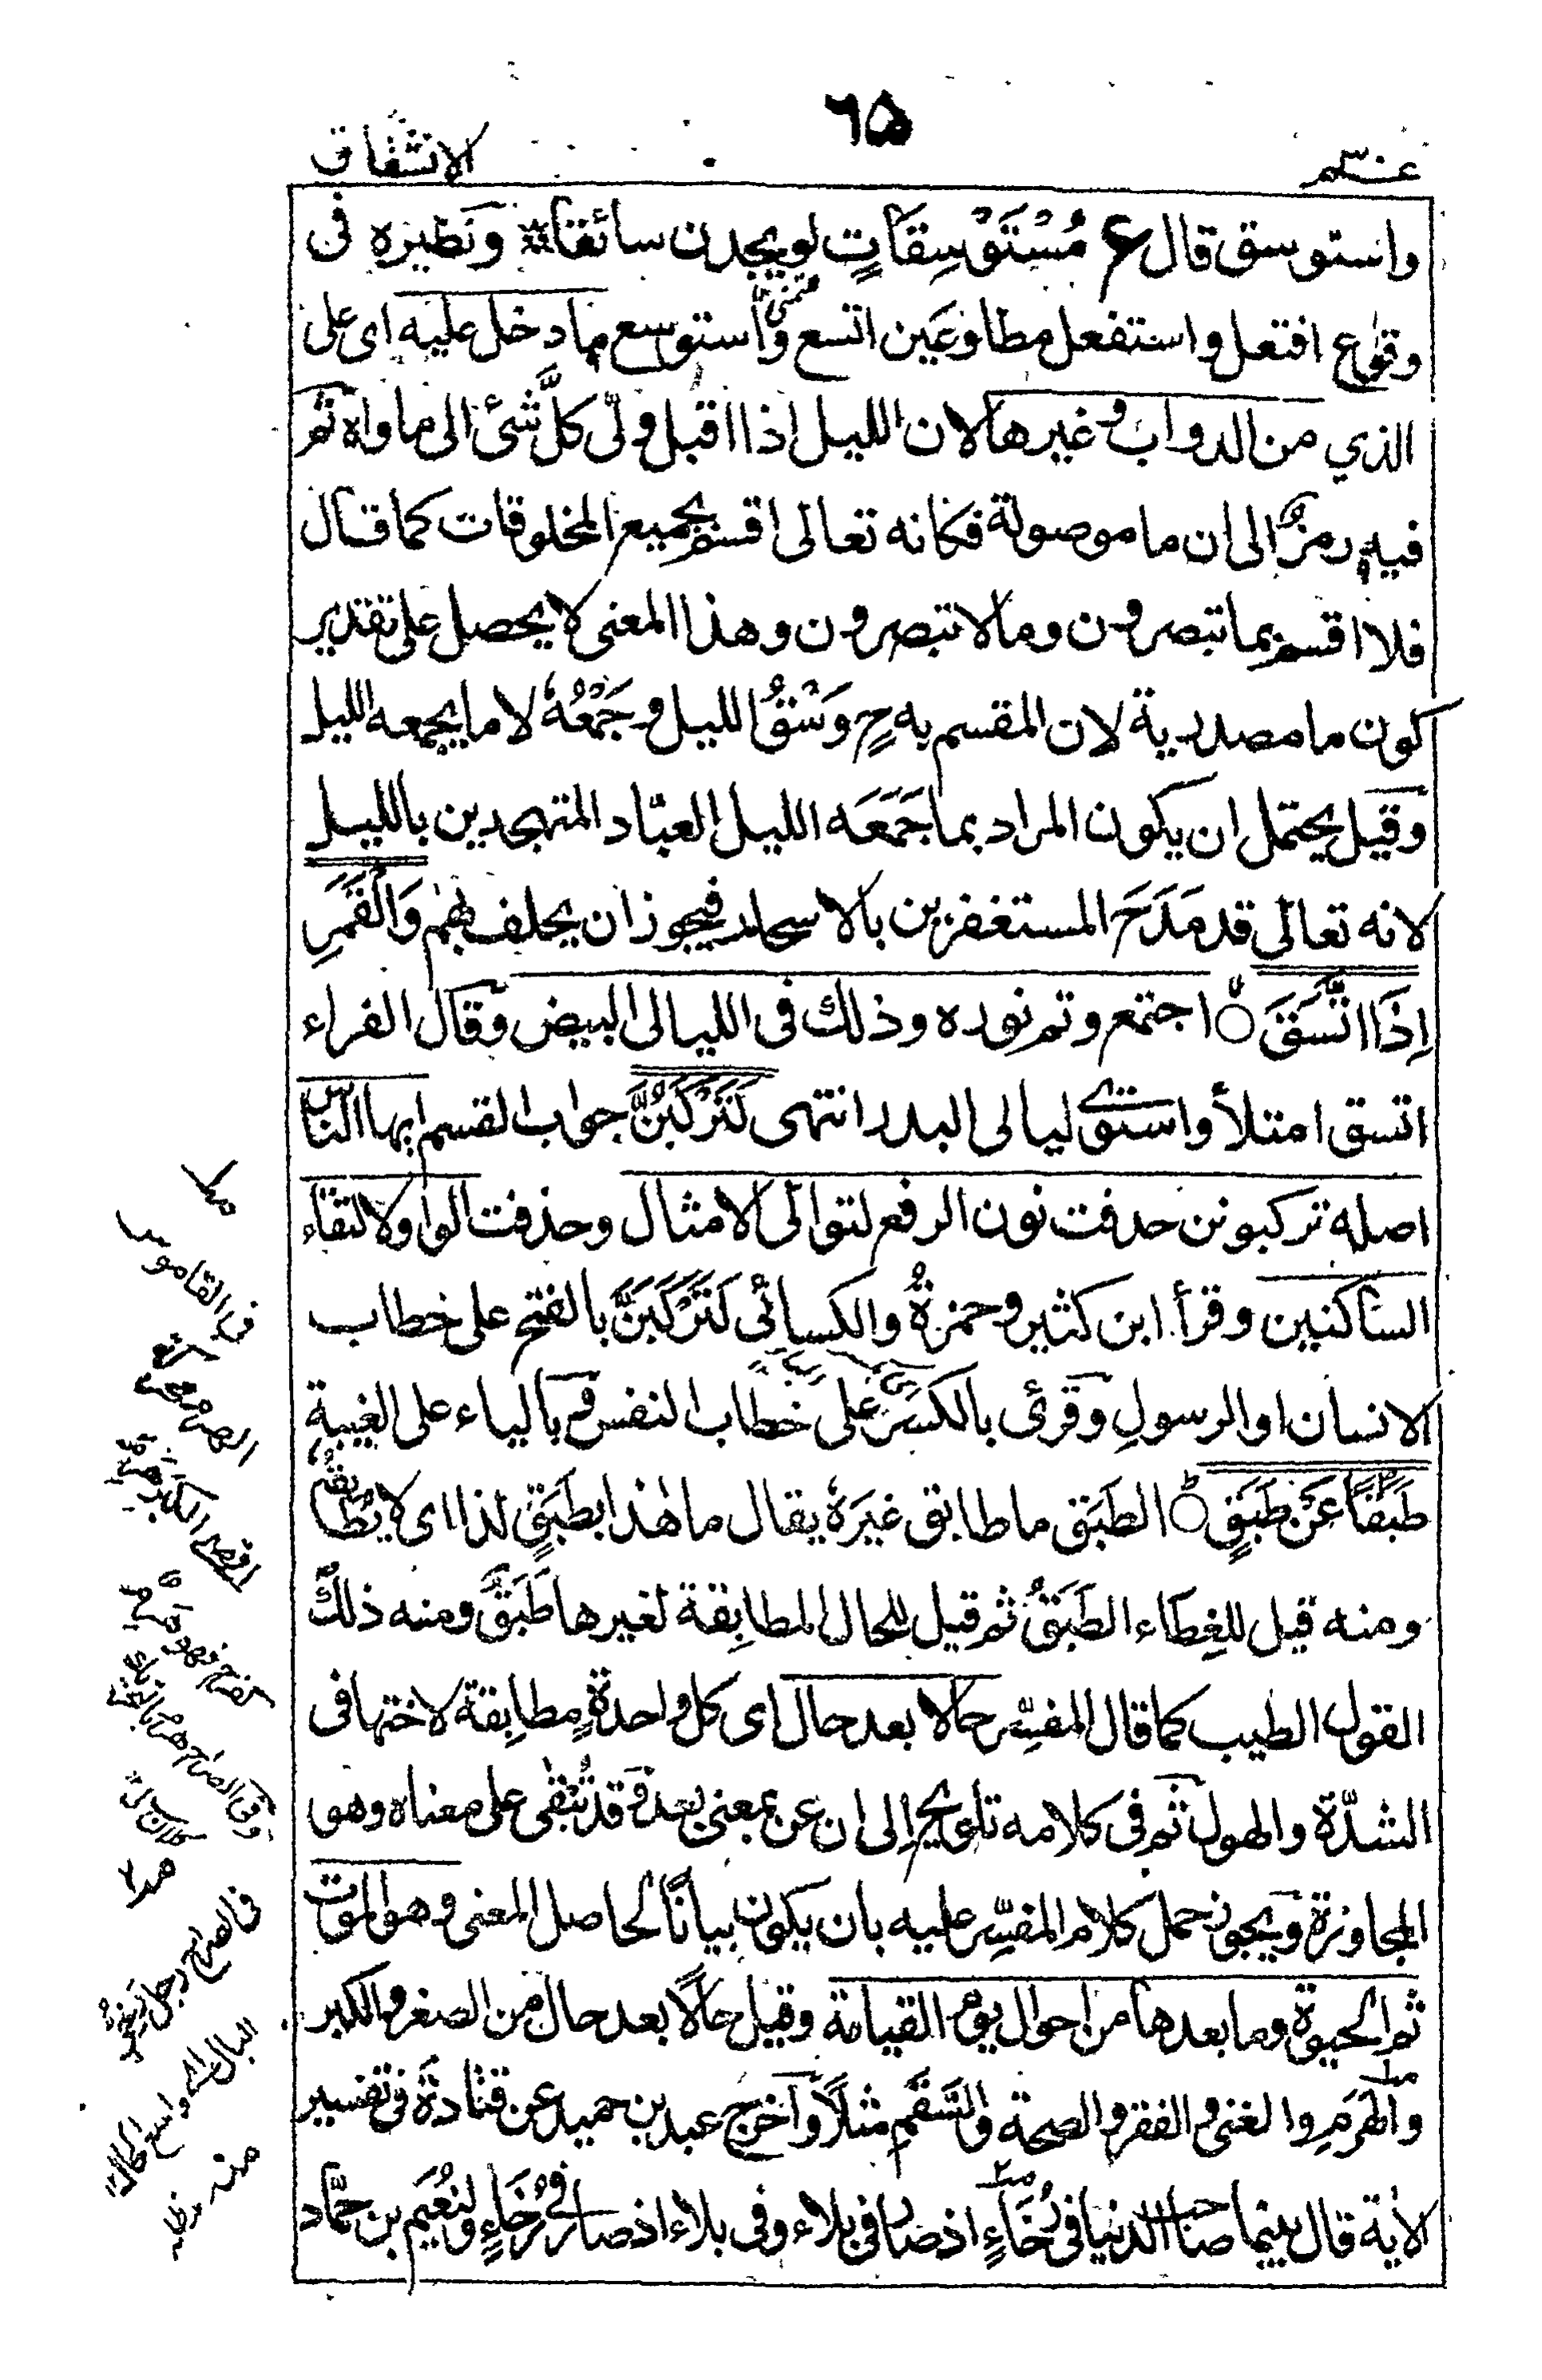 ٦٥
عـم
الانشقاق
واستوسق قال ع مُسْتَوْسِقَاتٍ لو يجدن سائقا ونظيره فى
وقوع افتعل واستفعل مطاوعين اتسع واستوسع مادخل عليه اى على
الذي من الدواب وغيرها لان الليل اذا اقبل ولى كل شئ الى ماواه ثم
فيه رمز الى ان ما موصولة فكانه تعالى اقسم بجميع المخلوقات كما قال
فلا اقسم بما تبصرون وما لا تبصرون وهذا المعنى لا يحصل على تقدير
كون ما مصدرية لان المقسم به ح وَسْقُ الليل وجَمْعُهٗ لا ما يجمعه الليل
وقيل يحتمل ان يكون المراد بما جَمَعَه الليل العبّاد المتهجدين بالليل
لانه تعالى قد مَدَحَ المستغفرين بالاسحار فيجوز ان يحلف بهم وَالْقَمَرِ
اِذَا اتَّسَقَ ○ اجتمع وتم نوره وذلك فى الليالى البيض وقال الفراء
اتسق امتلأ واستوى ليالى البدر انتهى لَتَرْكَبُنَّ جواب القسم ايها الناس
اصله تركبونن حذفت نون الرفع لتوالى الامثال وحذفت الواو لالتقاء
الساكنين وقرأ ابن كثير وحمزة والكسائى لَتَرْكَبَنَّ بالفتح على خطاب
الانسان او الرسول وقرئ بالكسر على خطاب النفس وبالياء على الغيبة
طَبَقًا عَنْ طَبَقٍ ○ الطَبَق ما طابق غيَرَهٗ يقال ما هٰذا بطَبَقٍ لذا اى لا يُطَابقه
ومنه قيل للغِطاء الطَبَقُ ثم قيل للحال المطابِقة لغيرها طَبَقٌ ومنه ذلك
القول الطيب كما قال المفسّر حالا بعد حال اى كل واحدة مطابِقة لاختها فى
الشدّة والهول ثم فى كلامه تلويح الى ان عن بمعنى بعد وقد تُبْقٰى على معناه وهو
المجاوزة ويجوز حمل كلام المفسّر عليه بان يكون بيانًا لحاصل المعنى وهو الموت
ثم الحيٰوة وما بعدها من احوال يوم القيامة وقيل حالًا بعد حال من الصغر والكبر
والهَرَمِ والغنى والفقر والصحة والسَّقَمِ مثلًا واَخرج عبد بن حميد عن قتادة فى تفسير
الاية قال بينما صاحب الدنيا فى رُخَاءٍ اذ صار فى بلاء وفى بلاء اذ صار فى رُخَاءٍ ولنُعَيم بن حمّاد
فى القاموس
الهرم محركة
اقصى الكبر
كفرح فهو هرم
فى الصراح رجل رخى
البال اى واسع الحال
منه